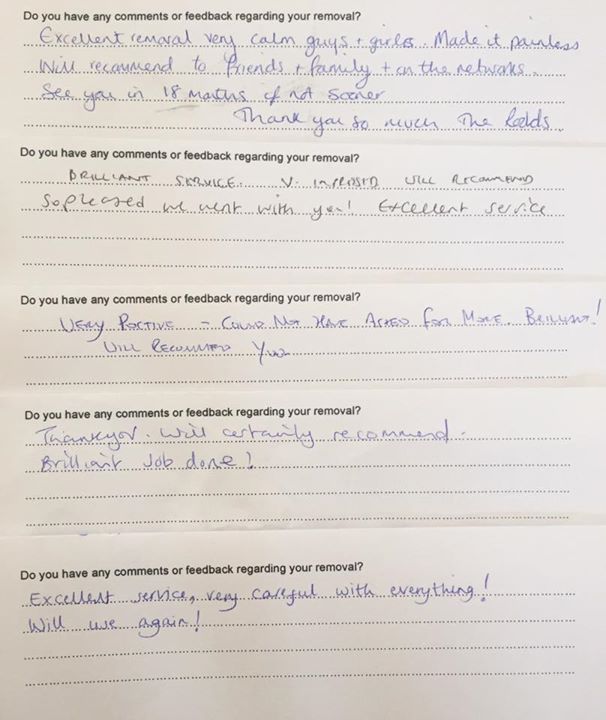 Do you have any comments or feedback regarding your removal?
Excellent removal very calm guys + girls. Made it painless
Will recommend to friends + family + on the networks.
See you in 18 months if not sooner
Thank you so much The
Do you have any comments or feedback regarding your removal?
BRILLIANT SERVICE. V. IMPRESSED WILL RECOMMEND
So pleased we went with you! Excellent service
Do you have any comments or feedback regarding your removal?
VERY POSITIVE - COULD NOT HAVE ASKED FOR MORE. BRILLIANT!
WILL RECOMMEND YOU
Do you have any comments or feedback regarding your removal?
Thankyou. Will certainly recommend.
Brilliant Job done!
Do you have any comments or feedback regarding your removal?
Excellent service, very careful with everything!
Will use again!